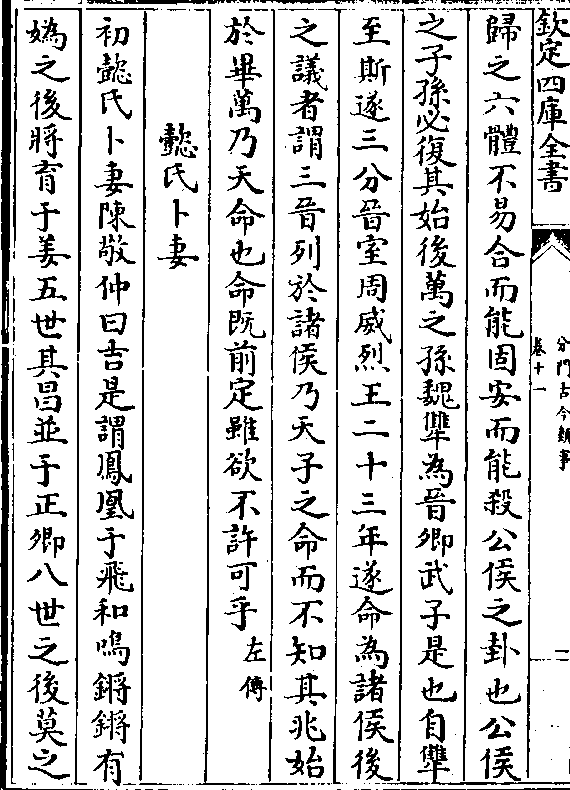 欽定四庫全書
分門古今類事
卷十一
二
歸之六體不易合而能固安而能殺公侯之卦也公侯
之子孫必復其始後萬之孫魏犨為晉卿武子是也自犨
至斯遂三分晉室周威烈王二十三年遂命為諸侯後
之議者謂三晉列於諸侯乃天子之命而不知其兆始
於畢萬乃天命也命既前定雖欲不許可乎左傳
懿氏卜妻
初懿氏卜妻陳敬仲曰吉是謂鳳凰于飛和鳴鏘鏘有
媯之後將育于姜五世其昌並于正卿八世之後莫之